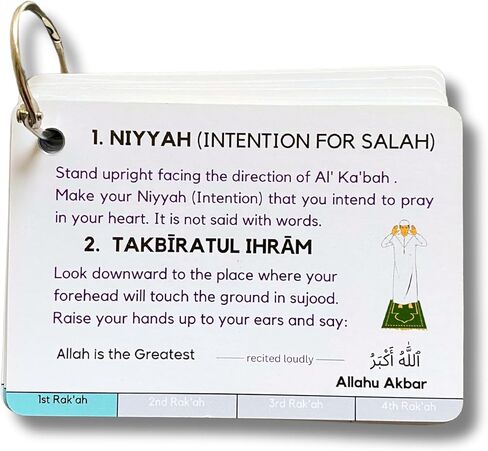 1. NIYYAH (INTENTION FOR SALAH)
Stand upright facing the direction of Al' Ka'bah .
Make your Niyyah (Intention) that you intend to pray
in your heart. It is not said with words.
2. TAKBĪRATUL IHRĀM
Look downward to the place where your
forehead will touch the ground in sujood.
Raise your hands up to your ears and say:
Allah is the Greatest recited loudly ٱللَّٰهُ أَكْبَرُ
Allahu Akbar
1st Rak'ah 2nd Rak'ah 3rd Rak'ah 4th Rak'ah